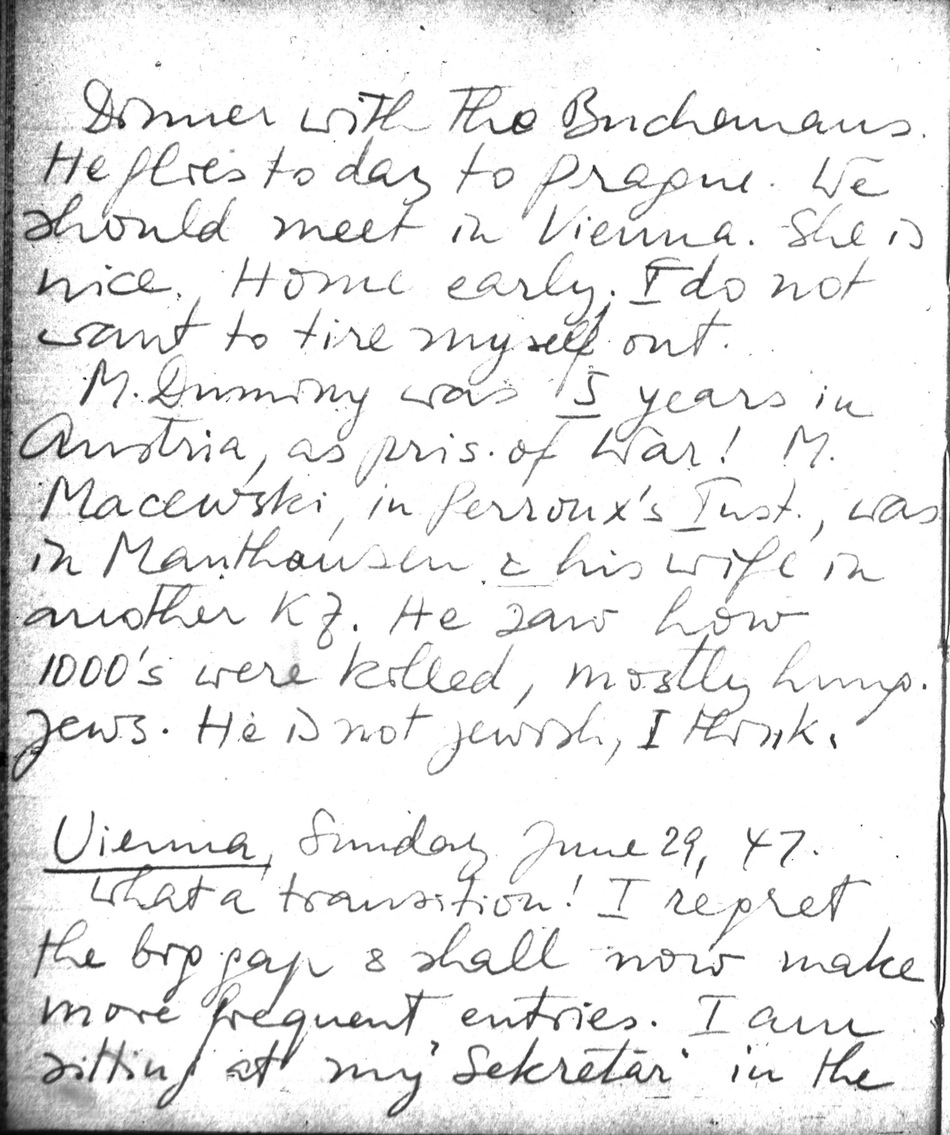 Dinner with the Buchanans.
He flies today to Prague. We
should meet in Vienna. She is
nice. Home early; I do not
want to tire myself out.
M. Dumony was 5 years in
Austria, as pris. of War! M.
Macewski, in Perroux's Inst., was
in Manthausen & his wife in
another KZ. He saw how
1000's were killed, mostly hung.
Jews. He is not jewish, I think.
Vienna, Sunday June 29, 47.
What a transition! I regret
the big gap & shall now make
more frequent entries. I am
sitting at my "Sekretär" in the